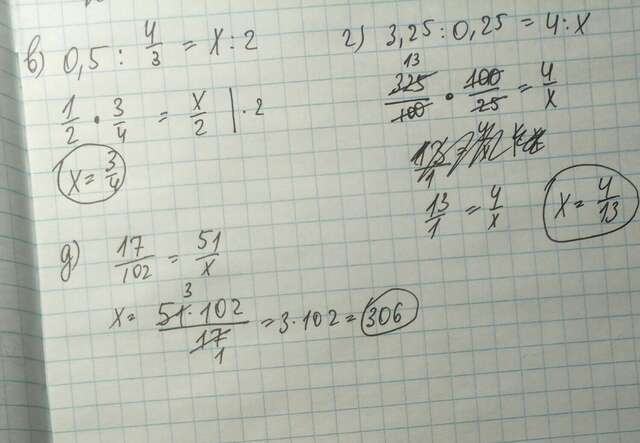 в) 0,5 : 4/3 = x : 2
1/2 · 3/4 = x/2 | · 2
x = 3/4
г) 3,25 : 0,25 = 4 : x
13
325/100 · 100/25 = 4/x
13/1 = 4/x
x = 4/13
д) 17/102 = 51/x
3
x = 51 · 102/17 = 3 · 102 = 306
1